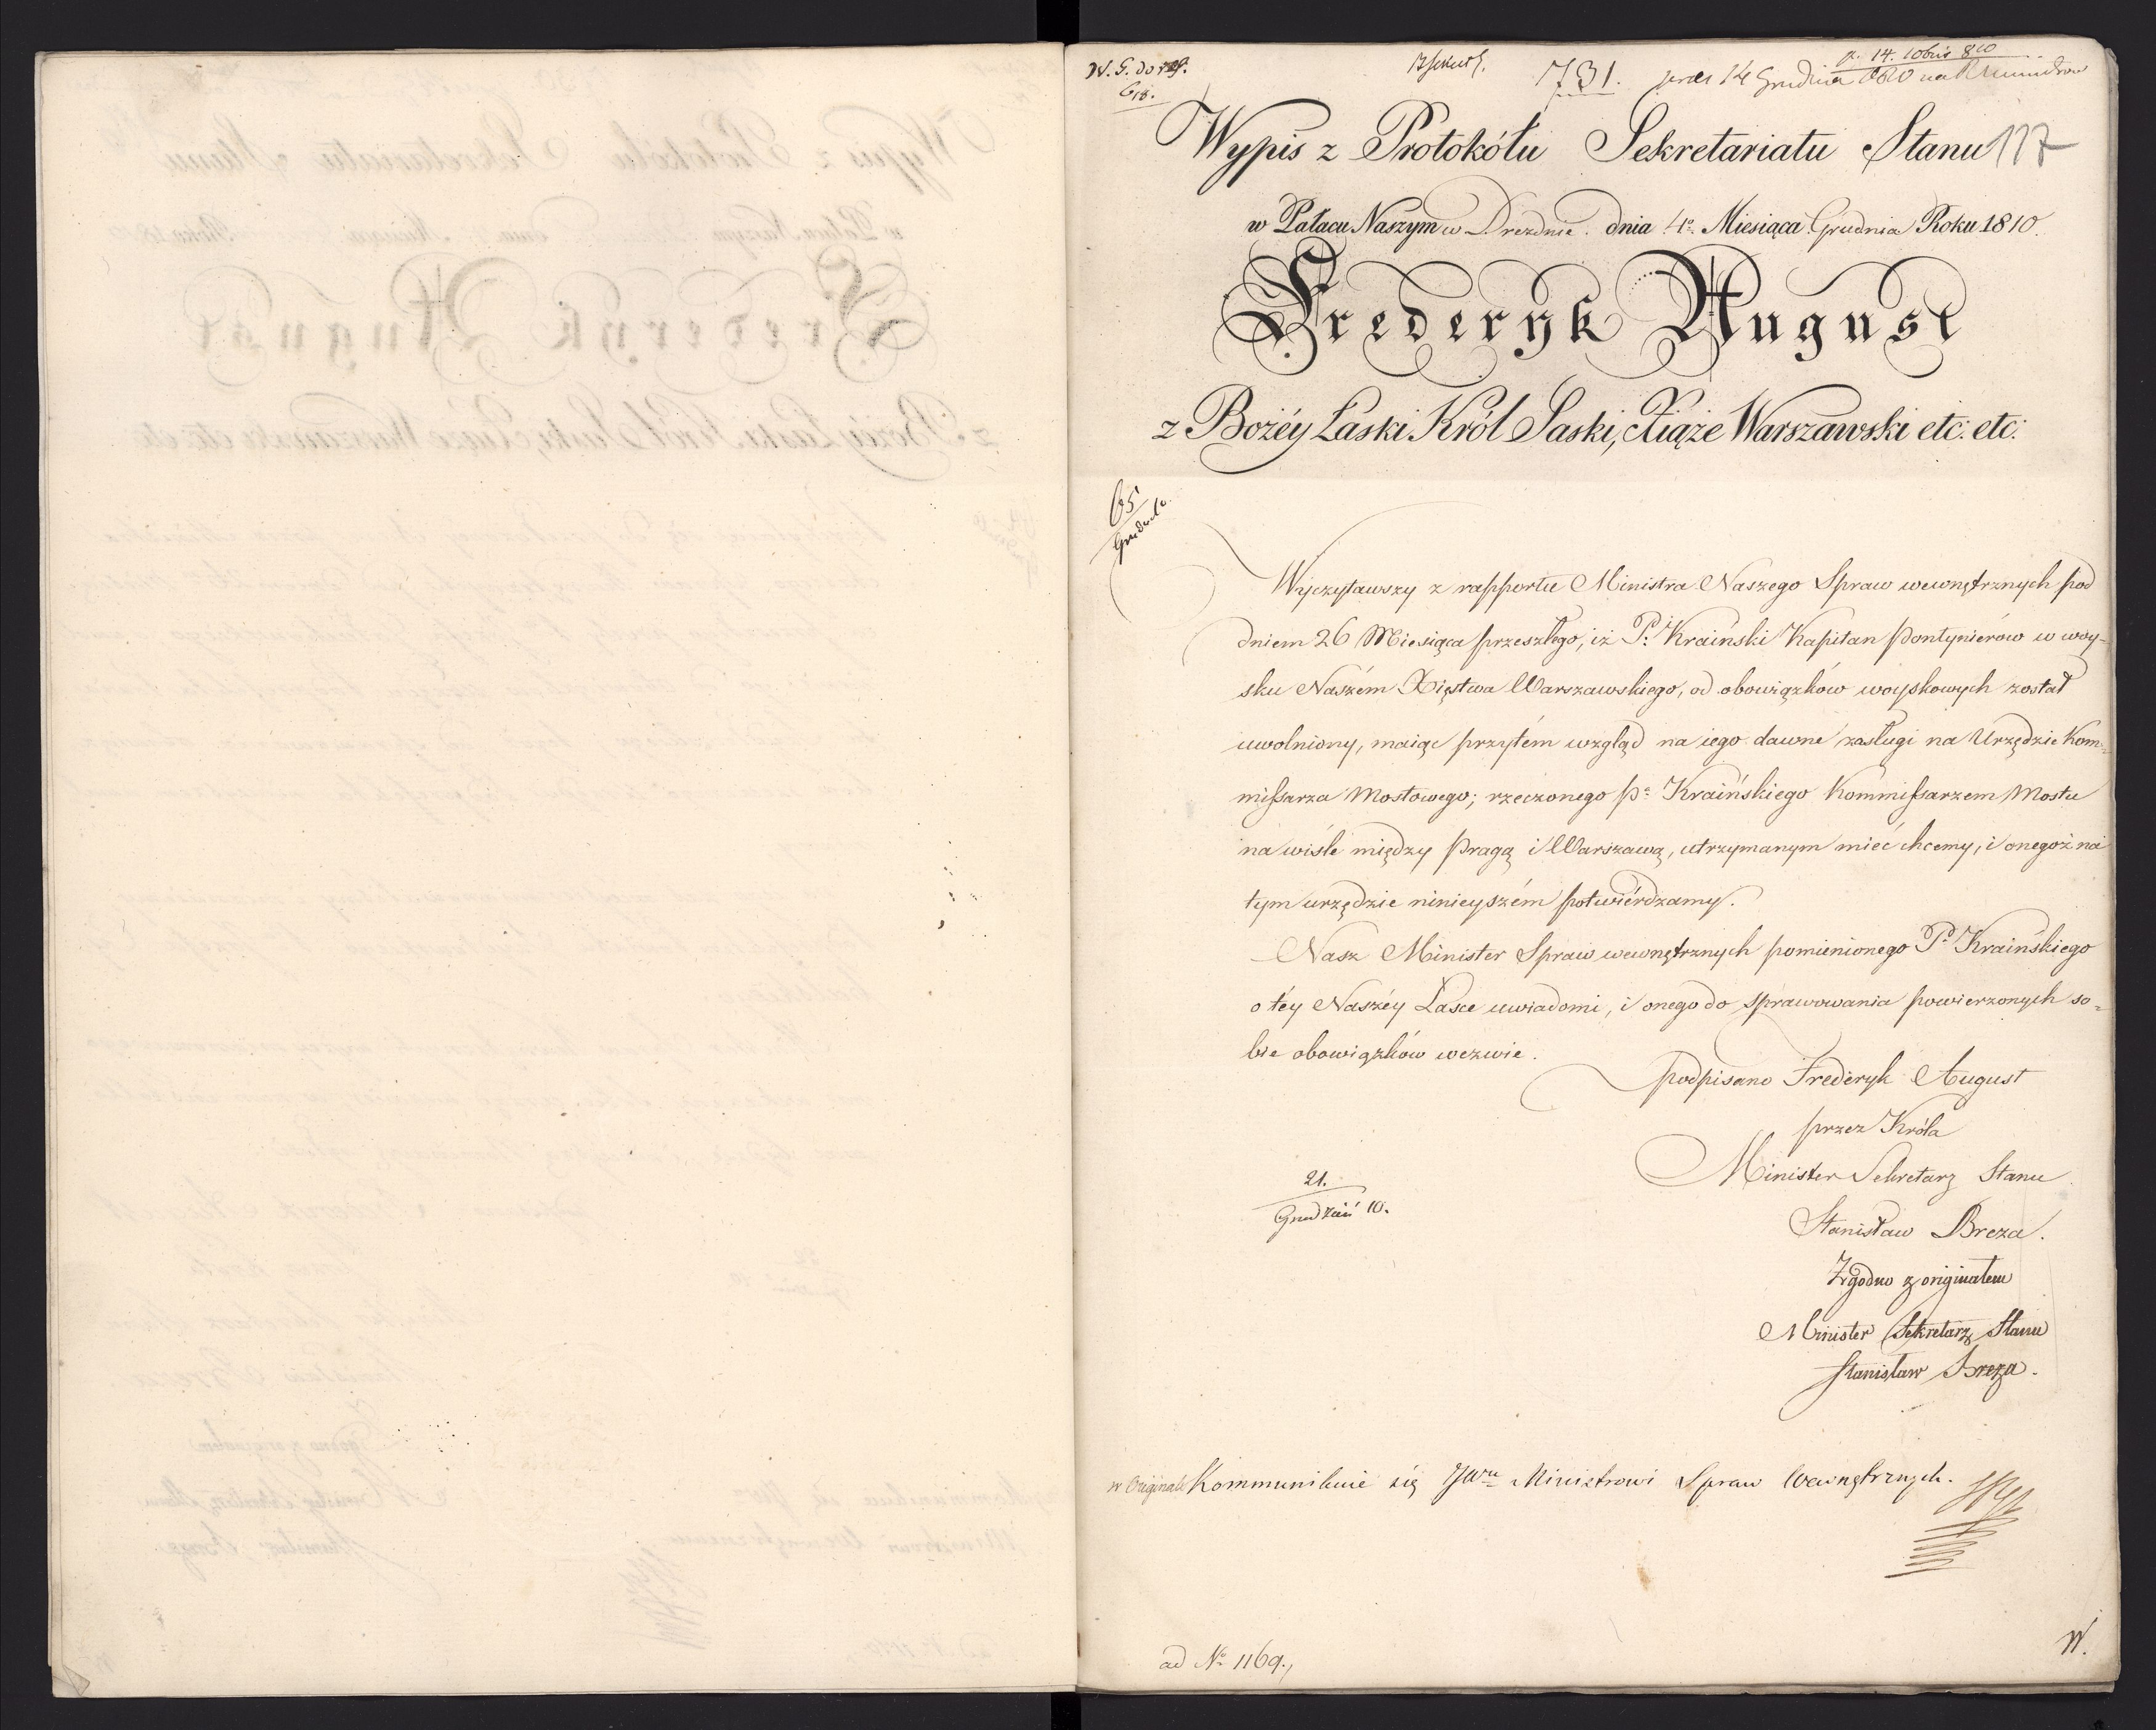 W. G. do
618.
731.
p. 14. 10bris 810
14 Grudnia 1810 na
117
Wypis z Protokółu Sekretariatu Stanu
w Pałacu Naszym w Dreznie dnia 4o Miesiąca Grudnia Roku 1810.
Frederyk August
z Bożéy Łaski Król Saski, Xiąże Warszawski etc: etc:
65
Grudnia 10.
Wyczytawszy z rapportu Ministra Naszego Spraw wewnętrznych pod
dniem 26 Miesiąca przeszłego, iż P. Kraiński Kapitan Pontynierów w woy-
sku Naszém Xięstwa Warszawskiego, od obowiązków woyskowych został
uwolniony, maiąc przytém wzgląd na iego dawne zasługi na Urzędzie Kom-
missarza Mostowego; rzeczonego Pa Kraińskiego Kommissarzem Mostu
na wiśle między Pragą i Warszawą, utrzymanym mieć chcemy, i onegoż na
tym urzędzie ninieyszém potwiérdzamy.
Nasz Minister Spraw wewnętrznych pomienionego Pa Kraińskiego
o téy Naszéy Łasce uwiadomi, i onego do sprawowania powierzonych so-
bie obowiązków wezwie.
podpisano Frederyk August
przez Króla
Minister Sekretarz Stanu
Stanisław Breza.
21.
Grudzień 10.
Zgodno z originałem
Minister Sekretarz Stanu
Stanisław Breza.
w Originale Kommunikuie się JWmu Ministrowi Spraw Wewnętrznych.
ad No 1169.,
W.